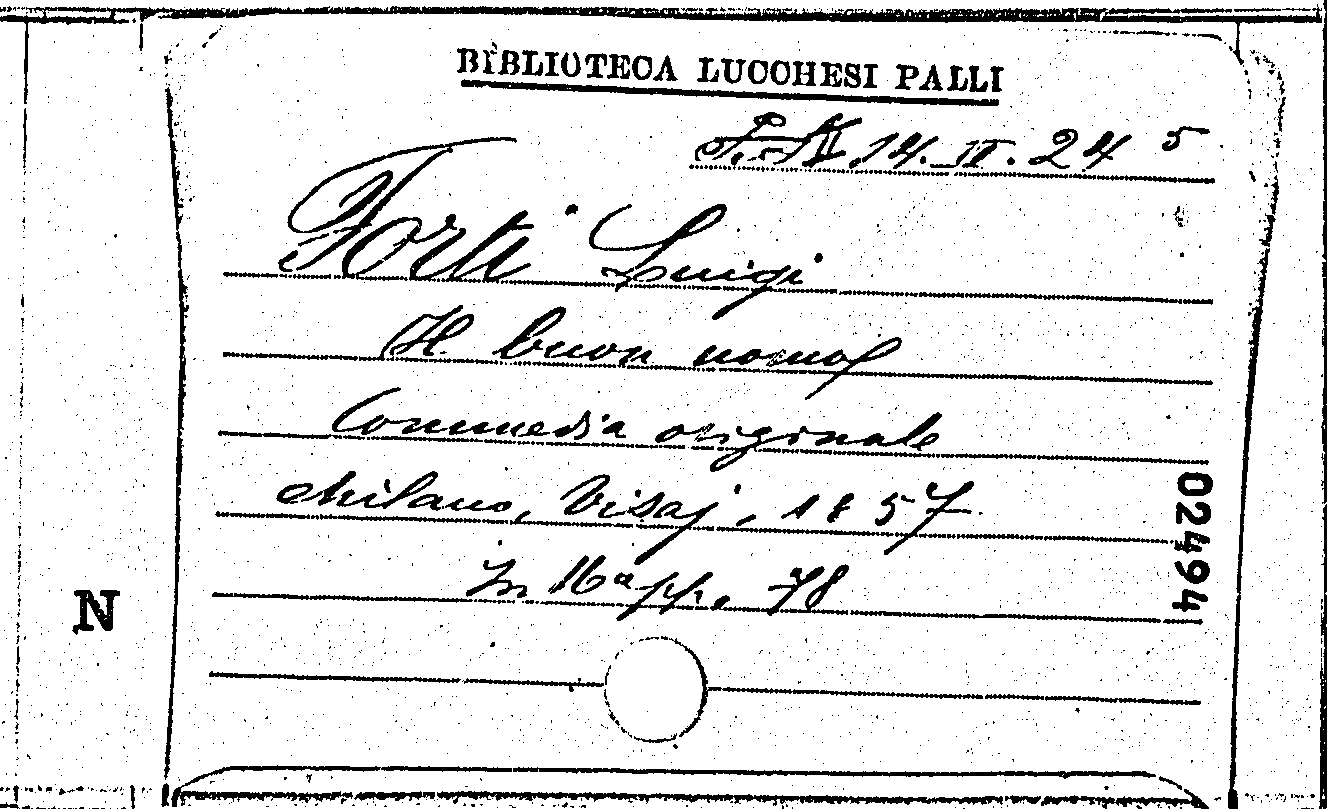 BIBLIOTECA LUCCHESI PALLI
14. II. 24 5
Forti Luigi
Il buon uomo
Commedia originale
Milano, Visaj, 1857
In 16º pp. 78
02494
N